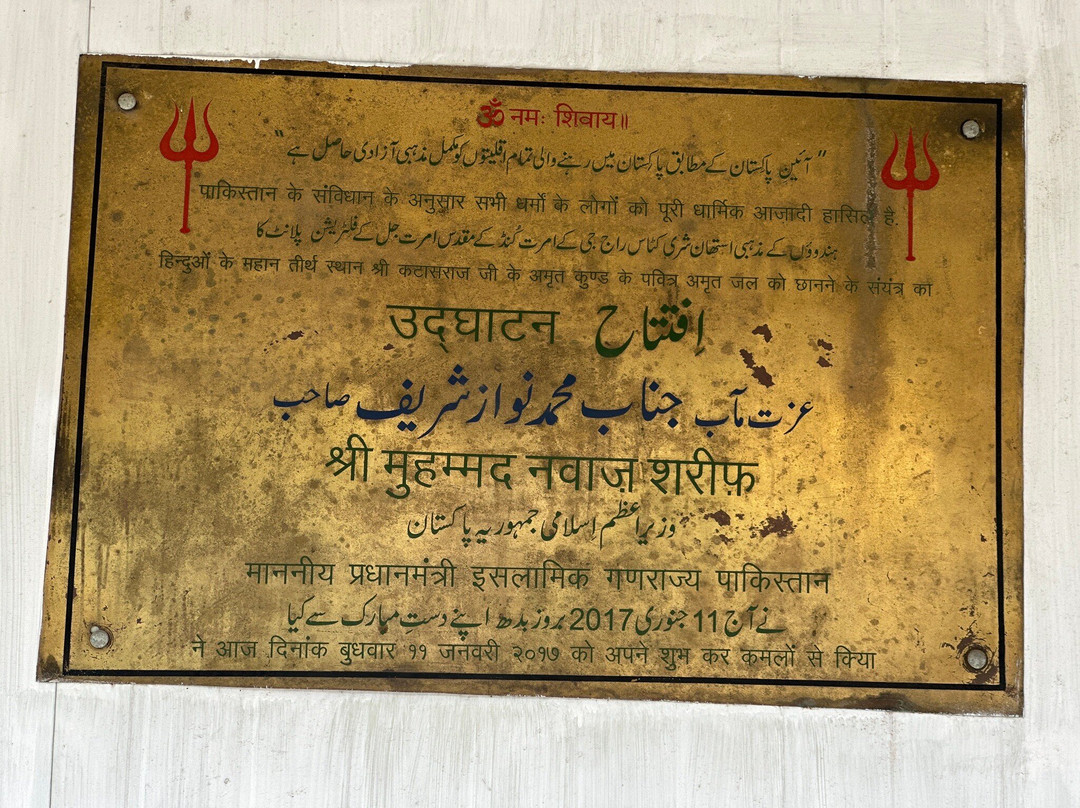 ॐ नमः शिवाय॥
"آئین پاکستان کے مطابق پاکستان میں رہنے والی تمام اقلیتوں کو مکمل مذہبی آزادی حاصل ہے"
पाकिस्तान के संविधान के अनुसार सभी धर्मो के लोगों को पूरी धार्मिक आजादी हासिल है.
ہندوؤں کے مذہبی استھان شری کٹاس راج جی کے امرت کُنڈ کے مقدس امرت جل کے فلٹریشن پلانٹ کا
हिन्दुओं के महान तीर्थ स्थान श्री कटासराज जी के अमृत कुण्ड के पवित्र अमृत जल को छानने के संयंत्र का
उद्घाटन اِفتتاح
عزت مآب جناب محمد نواز شریف صاحب
श्री मुहम्मद नवाज़ शरीफ़
وزیراعظم اِسلامی جمہوریہ پاکستان
माननीय प्रधानमंत्री इसलामिक गणराज्य पाकिस्तान
نے آج 11 جنوری 2017 بروز بدھ اپنے دستِ مبارک سے کیا
ने आज दिनांक बुधवार ११ जनवरी २०१७ को अपने शुभ कर कमलों से किया